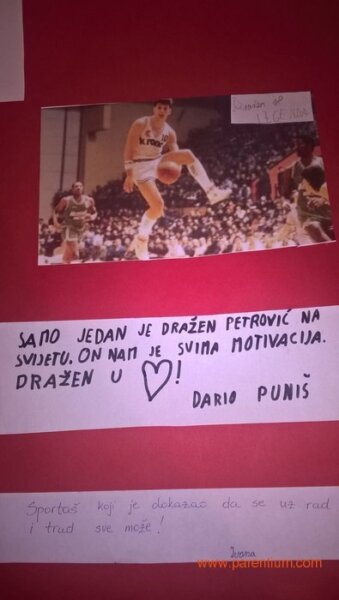 SAMO JEDAN JE DRAŽEN PETROVIĆ NA
SVIJETU. ON NAM JE SVIMA MOTIVACIJA.
DRAŽEN U ♡!
DARIO PUNIŠ
Sportaš koji je dokazao da se uz rad
i trud sve može!
Ivana
www.parentium.com